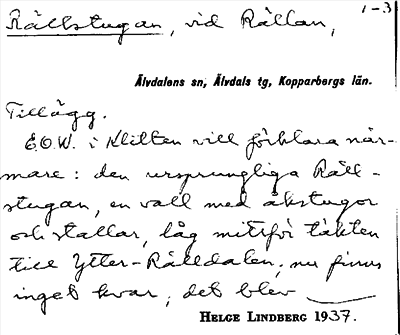 Rällstugan, vid Rällan, 1-3
Älvdalens sn, Älvdals tg, Kopparbergs län.
Tillägg.
E.O.W. i Klitten vill förklara när-
mare: den ursprungliga Räll-
stugan, en vall med åkstugor
och stallar, låg mitsför täkten
till Ytter-Rälldalen; nu finns
inget kvar; det blev
HELGE LINDBERG 1937.